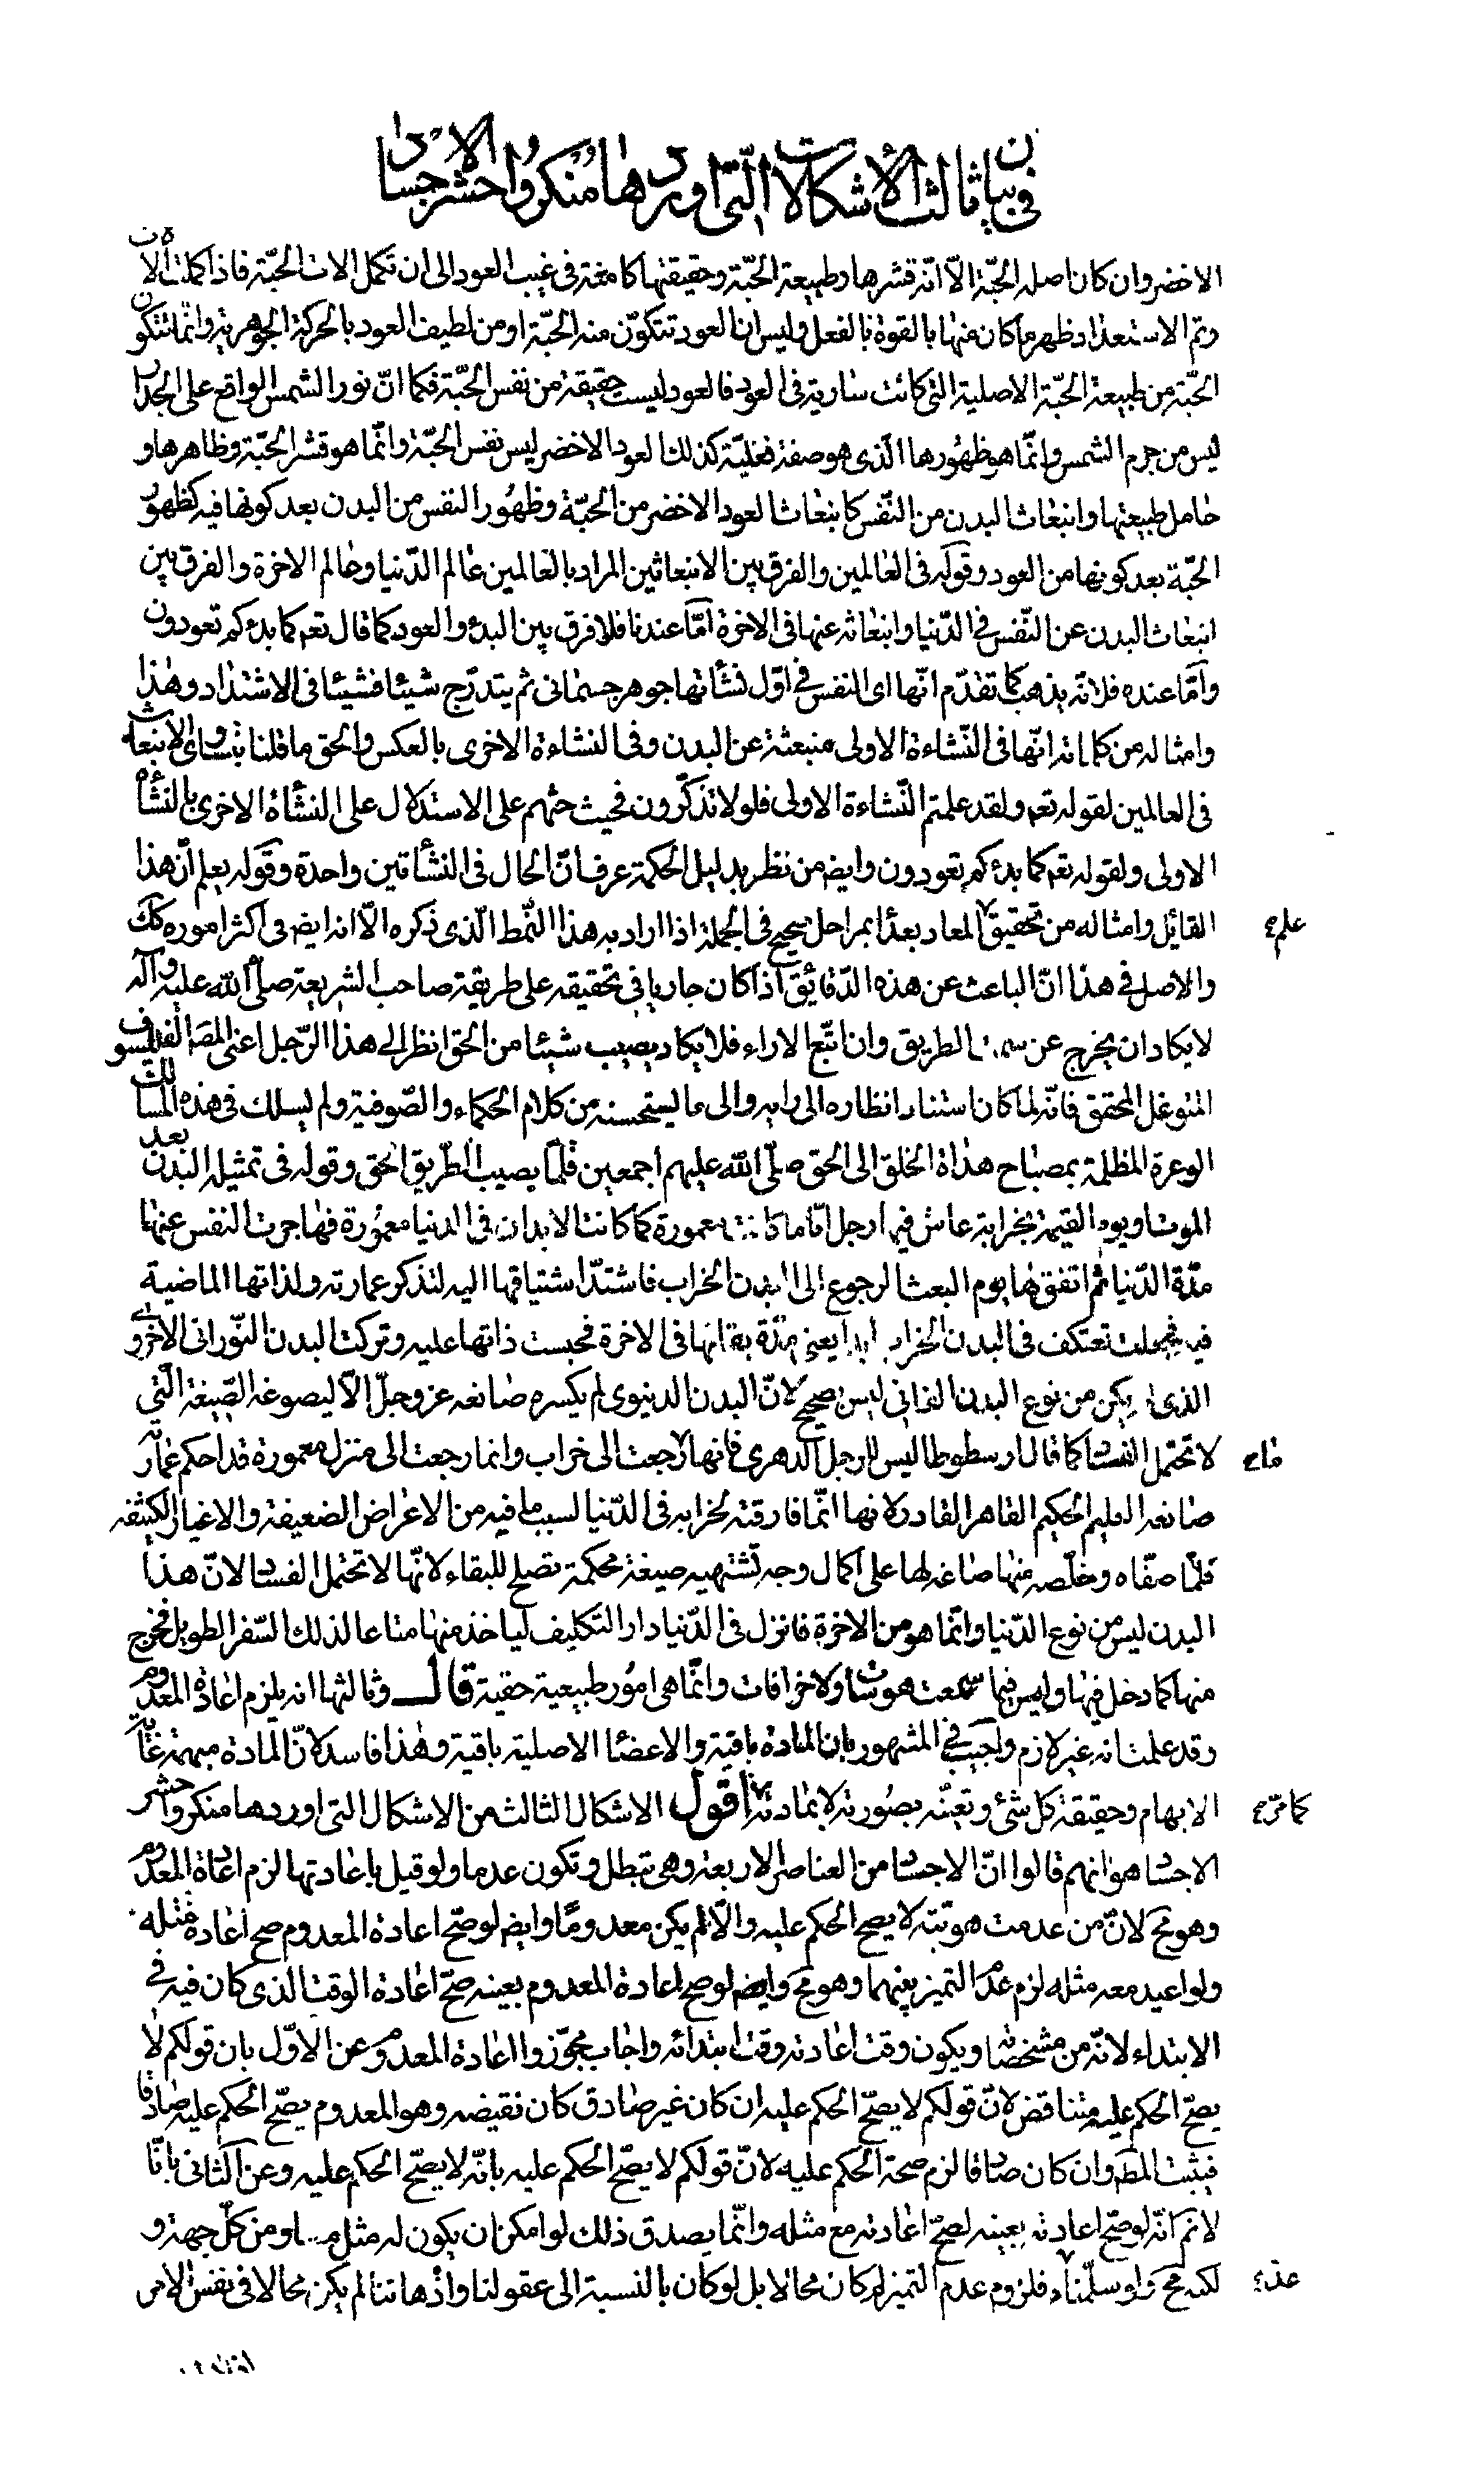 في بيان ثالث الاشكالات التى اوردها منكروا حشر الاجساد
الاخضر وان كان اصله الحبّة الّا انّه قشرها وطبيعة الحبّة وحقيقتها كامنة في غيب العود الى ان تكمل الات الحبّة فاذا كملت الالات
وتم الاستعداد ظهر ما كان منها بالقوة بالفعل وليس ان العود تتكوّن منه الحبّة او من لطيف العود بالحركة الجوهرية وانّما تتكون
الحبّة من طبيعة الحبّة الاصلية التى كانت سارية فى العود فالعود ليست حقيقة من نفس الحبّة فكما انّ نور الشمس الواقع على الجدار
ليس من جرم الشمس وانّما هو ظهورها الّذى هو صفة فعليّة كذلك العود الاخضر ليس نفس الحبّة وانّما هو قشر الحبّة وظاهرها و
حامل طبيعتها وانبعاث البدن من النّفس كانبعاث العود الاخضر من الحبّة وظهور النفس من البدن بعد كونها فيه كظهور
الحبّة بعد كونها من العود وقوله فى العالمين والفرق بين الانبعاثين المراد بالعالمين عالم الدّنيا وعالم الاخرة والفرق بين
انبعاث البدن عن النّفس في الدّنيا وانبعاثه عنها فى الاخرة امّا عندنا فلا فرق بين البدء والعود كما قال تعم كما بدءكم تعودون
وامّا عنده فلانّه يذهب كما تقدّم انّها اى النفس في اوّل نشأتها جوهر جسمانى ثم يتدرّج شيئا فشيئا فى الاشتداد وهذا
وامثاله من كلماته انّها فى النّشاءة الاولى منبعثة عن البدن وفى النشاءة الاخرى بالعكس والحق ما قلنا بتساوى الانبعاث
فى العالمين لقوله تعم ولقد علمتم النّشاءة الاولى فلولا تذكّرون فحيث حثهم على الاستدلال على النشأة الاخرى بالنشأة
الاولى ولقوله تعم كما بدءكم تعودون وايضم من نظر بدليل الحكمة عرف انّ الحال فى النشأتين واحدة وقوله يعلم انّ هذا
القائل وامثاله من تحقيق المعاد بعدا بمراحل صحيح فى الجملة اذا اراد به هذا النّمط الّذى ذكره الّا انه ايضم فى اكثر اموره كك
علم
والاصل في هذا انّ الباعث عن هذه الدّقايق اذا كان جاريا في تحقيقه على طريقة صاحب الشريعة صلّى الله عليه وآله
لا يكاد ان يخرج عن سمت الطريق وان اتّبع الاراء فلا يكاد يصيب شيئا من الحق انظر الى هذا الرّجل اعنى المصم الفيلسوف
المتوغل المحقق فانّه لما كان استناد انظاره الى رايه والى ما يستحسنه من كلام الحكماء والصّوفية ولم يسلك فى هذه المسالك
الوعرة المظلمة بمصباح هداة الخلق الى الحق صلّى الله عليهم اجمعين قلّما يصيب الطّريق الحق وقوله فى تمثيله البدن بعد
الموت او يوم القيمة بخرابة عاش فيها رجل امّا ما كانت معمورة كما كانت الابدان فى الدنيا معمورة فهاجرت النفس عنها
مدّة الدّنيا ثم اتفق لها يوم البعث الرجوع الى البدن الخراب فاشتدّ اشتياقها اليه لتذكر عمارته ولذاتها الماضية
فيه فجعلت تعتكف فى البدن الخراب ابدا يعنى مدّة بقائها فى الاخرة فحبست ذاتها عليه وتركت البدن النّورانى الاخروى
الذى لم يكن من نوع البدن الفانى ليس بصحيح لانّ البدن الدنيوى لم يكسره صانعه عز وجلّ الّا ليصوغه الصّيغة الّتى
لا تحتمل الفساد كما قال ارسطوطاليس للرجل الدهرى فانها رجعت الى خراب وانما رجعت الى منزل معمورة قد احكم عمارته
ما
صانعه العليم الحكيم القاهر القادر لانها انّما فارقته لخرابه فى الدّنيا لسبب ما فيه من الاعراض الضعيفة والاغيار الكثيفه
فلمّا صفّاه وخلّصه منها صاغه لها على اكمال وجه تشتهيه صيغة محكمة تصلح للبقاء لانّها لا تحتمل الفساد لانّ هذا
البدن ليس من نوع الدّنيا وانّما هو من الاخرة فانزل فى الدّنيا دار التكليف لياخذ منها متاعا لذلك السّفر الطويل فخرج
منها كما دخل فيها وليس فيما سمعت هوسات ولا خرافات وانّما هى امور طبيعية حقية قال وثالثها انه يلزم اعادة المعدوم
وقد علمت انه غير لازم واجيب في المشهور بان المادة باقية والاعضا الاصلية باقية وهذا فاسد لانّ المادة مبهمة غاية
الابهام وحقيقة كل شئ وتعيّنه بصورته لا بمادته اقول الاشكال الثالث من الاشكال التى اوردها منكروا حشر
كما مرّ
الاجساد هو انهم قالوا انّ الاجساد من العناصر الاربعة وهى تبطل وتكون عدما ولو قيل باعادتها لزم اعادة المعدوم
وهو مح لانّ من عدمت هويّته لا يصح الحكم عليه والّا لم يكن معدوما وايضم لو صحّ اعادة المعدوم صح اعادة مثله
ولو اعيد معه مثله لزم عدم التميز بينهما وهو مح وايضم لو صح اعادة المعدوم بعينه صحّ اعادة الوقت الذى كان فيه في
الابتداء لانّه من مشخصاته ويكون وقت اعادته وقت ابتدائه واجاب مجوّزوا اعادة المعدوم عن الاوّل بان قولكم لا
يصحّ الحكم عليه متناقض لانّ قولكم لا يصحّ الحكم عليه ان كان غير صادق كان نقيضه وهو المعدوم يصحّ الحكم عليه صادقا
فيثبت المطم وان كان صادقا لزم صحة الحكم عليه لانّ قولكم لا يصحّ الحكم عليه بانّه لا يصحّ الحكم عليه وعن الثانى بانّا
لا نم انّه لو صحّ اعادته بعينه لصحّ اعادته مع مثله وانّما يصدق ذلك لو امكن ان يكون له مثل من كلّ جهة و
لكنه مح ولو سلّمناه فلزوم عدم التميز لو كان محالا بل لو كان بالنسبة الى عقولنا واذهاننا لم يكن محالا فى نفس الامر